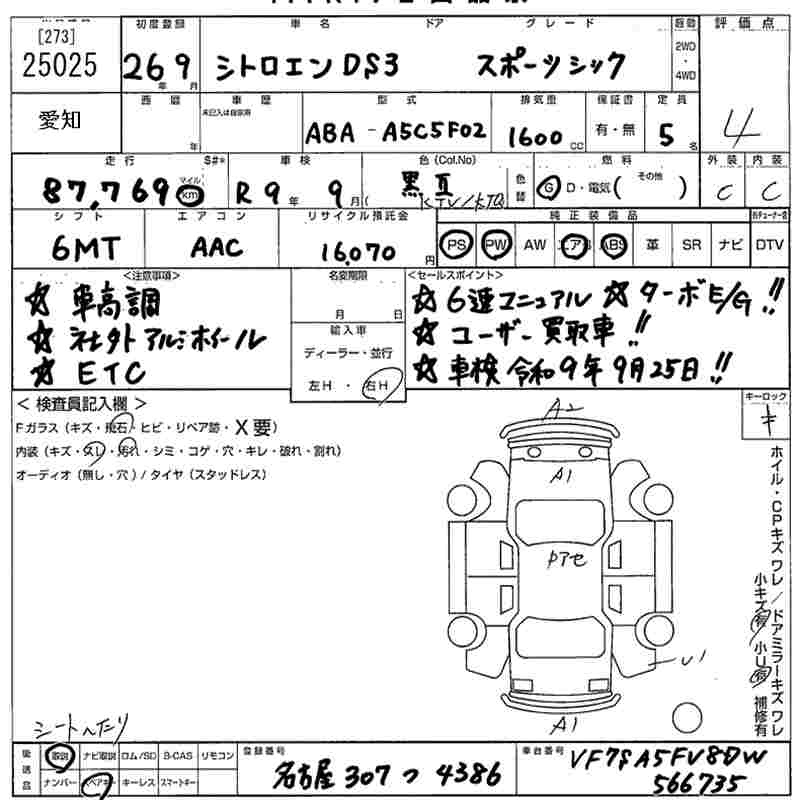 [273]
25025
初度登録 車名 ドア グレード 評価点
26年 9月 シトロエン DS3 スポーツシック 2WD・4WD 4
愛知
西暦 車歴 型式 排気量 保証書 定員
年 未記入は自家用 ABA - A5C5F02 1600cc 有・無 5名
走行 S#* 車検 色(Col.No) 燃料 外装 内装
87,769 マイル km R9年 9月 黒 色替 G D・電気( その他 ) C C
シフト エアコン リサイクル預託金 純正装備品
6MT AAC 16,070円 PS PW AW エアB ABS 革 SR ナビ DTV
<注意事項> 名変期限 <セールスポイント>
☆ 車高調
☆ 社外アルミホイール
☆ ETC
月 日
輸入車
ディーラー・並行
左H・右H
☆ 6速マニュアル ☆ ターボE/G!!
☆ ユーザー買取車!!
☆ 車検 令和9年9月25日!!
<検査員記入欄>
Fガラス(キズ・飛石・ヒビ・リペア跡・X要)
内装(キズ・スレ・汚れ・シミ・コゲ・穴・キレ・破れ・割れ)
オーディオ(無し・穴)/タイヤ(スタッドレス)
キーロック
キ
A2
A1
Pアセ
U1
A1
ホイル・CPキズワレ/ドアミラーキズワレ
小キズ有 小U有 補修有
シートへたり
後送品 取説 ナビ取説 ロム/SD B-CAS リモコン
ナンバー スペアキー キーレス スマートキー
登録番号
名古屋 307 つ 4386
車台番号
VF7SA5FV8DW
566735